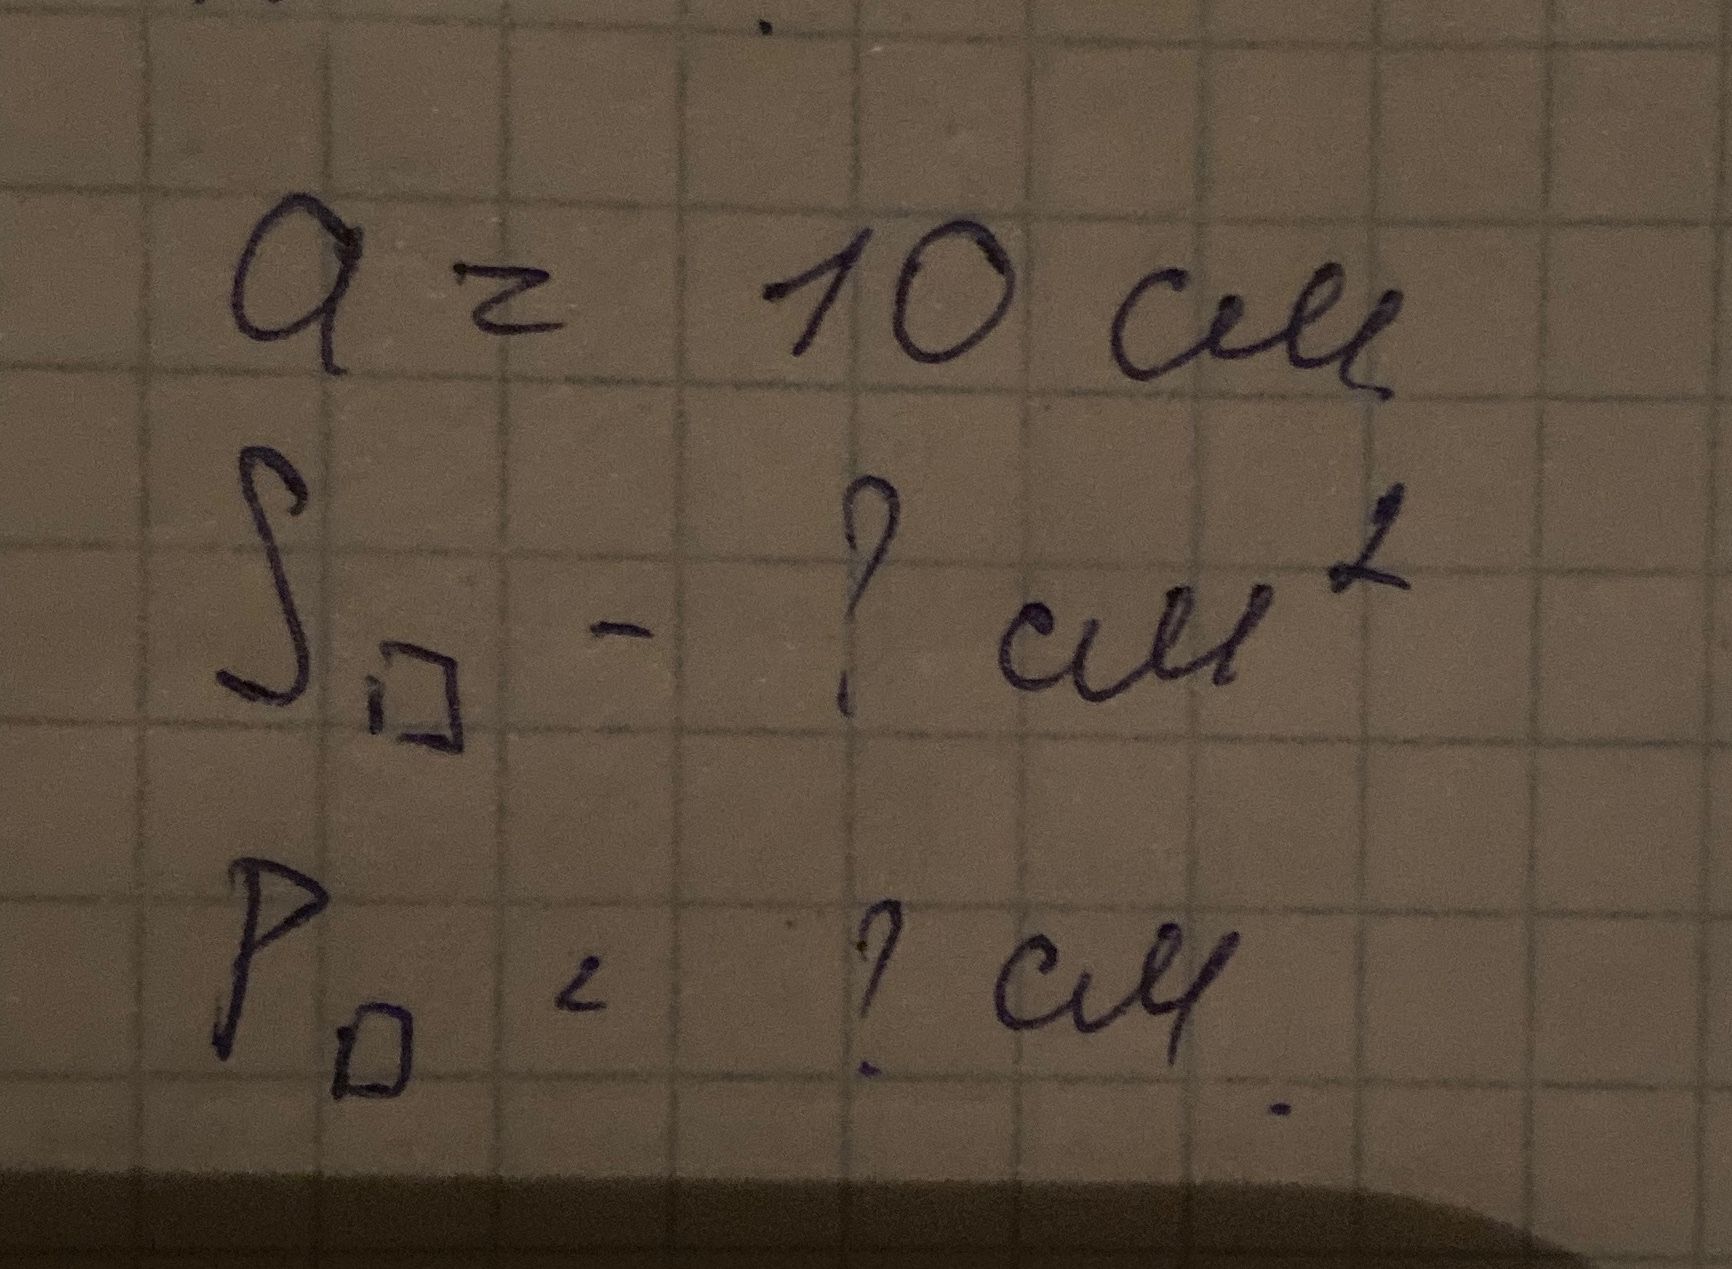 a = 10 см
S□ - ? см²
P□ = ? см.